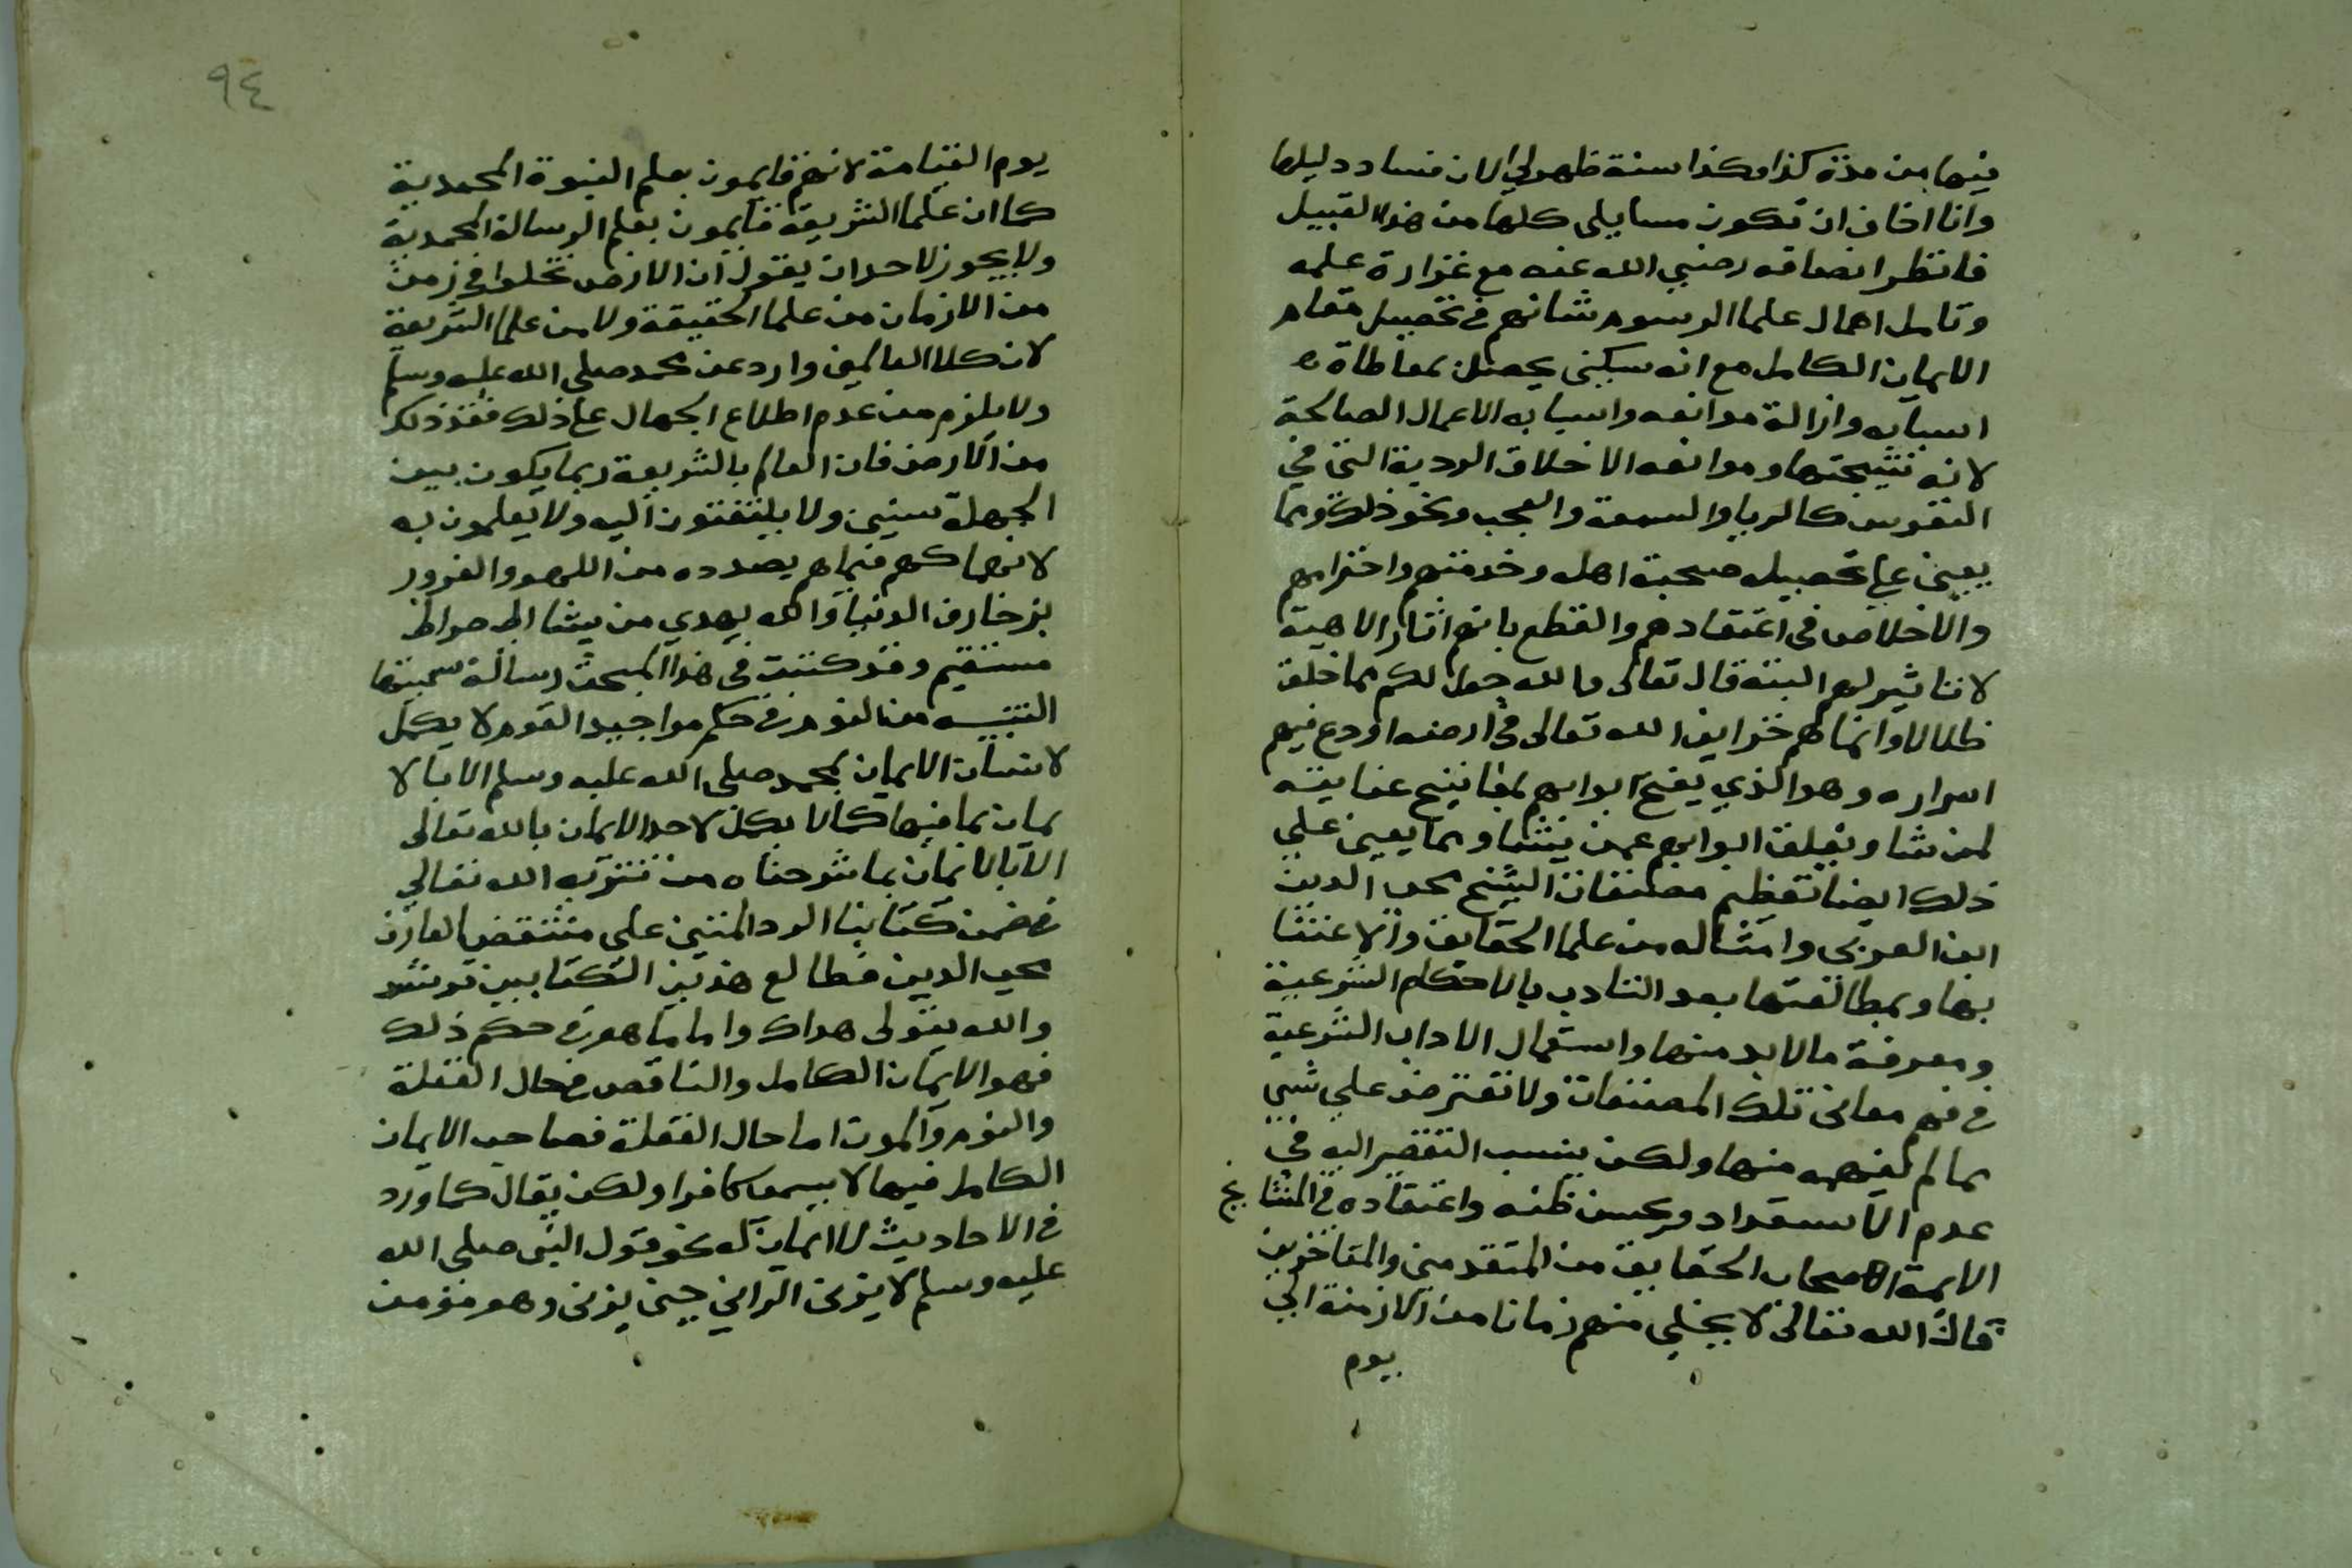 فيها من مدة كذا وكذا سنة ظهر لي الان فساد دليلها
وانا اخاف ان تكون مسايلي كلها من هذا القبيل
فانظر انصافه رضي الله عنه مع غزارة علمه
وتامل اهمال علما الرسوم شانهم في تحصيل مقام
الايمان الكامل مع انه سبكنى يحصل بمعاطاة
اسبابه وازالة موانعه واسبابه الاعمال الصالحة
لانه نتيجتها وموانعه الاخلاق الردية التي في
النفوس كالريا والسمعة والعجب ونحو ذلك ومما
يعين على تحصيله صحبة اهله وخدمتهم واحترامهم
والاخلاص في اعتقادهم والقطع بانهم اثار الاهية
لا تاثير لهم البتة قال تعالى والله جعل لكم مما خلق
ظلالا وانما هم خزاين الله تعالى في ارضه اودع فيهم
اسراره وهو الذي يفتح ابوابهم بمفاتيح عنايته
لمن شا ويغلق ابوابهم عمن يشا ومما يعين على
ذلك ايضا تعظيم مصنفات الشيخ محى الدين
ابن العربى وامثاله من علما الحقايق والاعتنا
بها وبمطالعتها بعد التادب بالاحكام الشرعية
ومعرفة مالابد منها واستعمال الاداب الشرعية
في فهم معانى تلك المصنفات ولا تعترض على شي
مما لم يفهمه منها ولكن ينسب التقصير اليه في
عدم الاستعداد ويحسن ظنه واعتقاده في المشايخ
الايمة اصحاب الحقايق من المتقدمين والمتاخرين
فان الله تعالى لا يخلي منهم زمانا من الازمنة الى
يوم
٩٤
يوم القيامة لانهم قايمون بعلم النبوة المحمدية
كما ان علما الشريعة قايمون بعلم الرسالة المحمدية
ولا يجوز لاحد ان يقول ان الارض تخلوا في زمن
من الازمان من علما الحقيقة ولا من علما الشريعة
لان كلا العالمين وارد عن محمد صلى الله عليه وسلم
ولا يلزم من عدم اطلاع الجهال على ذلك فقد ذلك
من الارض فان العالم بالشريعة ربما يكون بين
الجهلة سنين ولا يلتفتون اليه ولا يعلمون به
لانهماكهم فيما هم بصدده من اللهو والغرور
بزخارف الدنيا والله يهدي من يشا الى صراط
مستقيم وقد كتبت في هذا المبحث رسالة سميتها
التنبيه من النوم في حكم مواجيد القوم لا يكمل
لانسان الايمان بمحمد صلى الله عليه وسلم الا بالا
يمان بما فيها كما لا يكمل لاحد الايمان بالله تعالى
الا بالايمان بما شرحناه من تنزيه الله تعالى
في ضمن كتابنا الرد المتين على منتقص العارف
محي الدين فطالع هذين الكتابين ترشد
والله يتولى هداك واما ما هو في حكم ذلك
فهو الايمان الكامل والناقص في حال الغفلة
والنوم والموت اما حال الغفلة فصاحب الايمان
الكامل فيها لا يسما كافرا ولكن يقال كما ورد
في الاحاديث لا ايمان له نحو قول النبى صلى الله
عليه وسلم لا يزنى الزاني حين يزنى وهو مؤمن